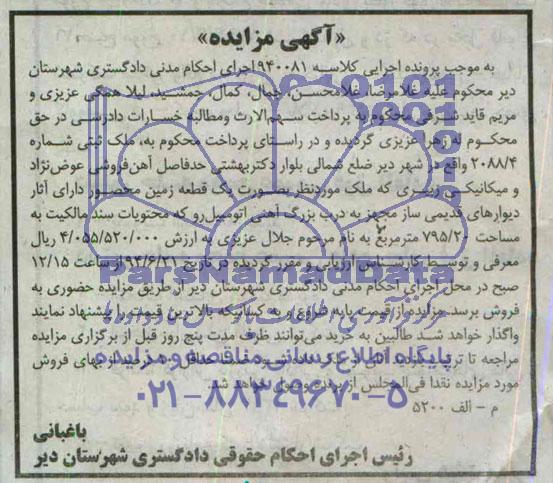 «آگهی مزایده»
به موجب پرونده اجرایی کلاسه ۹۴۰۰۸۱ اجرای احکام مدنی دادگستری شهرستان
دیر محکوم علیه غلامرضا، غلامحسن، جمال، کمال، جمشید، لیلا همگی عزیزی و
مریم قاید شرفی محکوم به پرداخت سهم‌الارث ومطالبه خسارات دادرسی در حق
محکوم له زهرا عزیزی گردیده و در راستای پرداخت محکوم به، ملک ثبتی شماره
۲۰۸۸/۴ واقع در شهر دیر ضلع شمالی بلوار دکتربهشتی حدفاصل آهن‌فروشی عوض‌نژاد
و میکانیکی زیری که ملک موردنظر بصورت یک قطعه زمین محصور دارای آثار
دیوارهای قدیمی ساز مجهز به درب بزرگ آهنی اتومبیل‌رو که محتویات سند مالکیت به
مساحت ۷۹۵/۲۰ مترمربع به نام مرحوم جلال عزیزی به ارزش ۴/۰۵۵/۵۲۰/۰۰۰ ریال
معرفی و توسط کارشناس ارزیابی و مقرر گردیده در تاریخ ۹۴/۶/۲۱ از ساعت ۱۲/۱۵
صبح در محل اجرای احکام مدنی دادگستری شهرستان دیر از طریق مزایده حضوری به
فروش برسد. مزایده از قیمت پایه شروع و به کسانیکه بالاترین قیمت را پیشنهاد نمایند
واگذار خواهد شد. طالبین به خرید می‌توانند ظرف مدت پنج روز قبل از برگزاری مزایده
مراجعه تا ترتیب بازدید حداقل بهای فروش
مورد مزایده نقدا فی‌المجلس از برنده وصول خواهد شد.
م - الف ۵۲۰۰
باغبانی
رئیس اجرای احکام حقوقی دادگستری شهرستان دیر
ParsNamadData
پایگاه اطلاع رسانی مناقصه و مزایده
۰۲۱-۸۸۳۴۹۶۷۰-۵